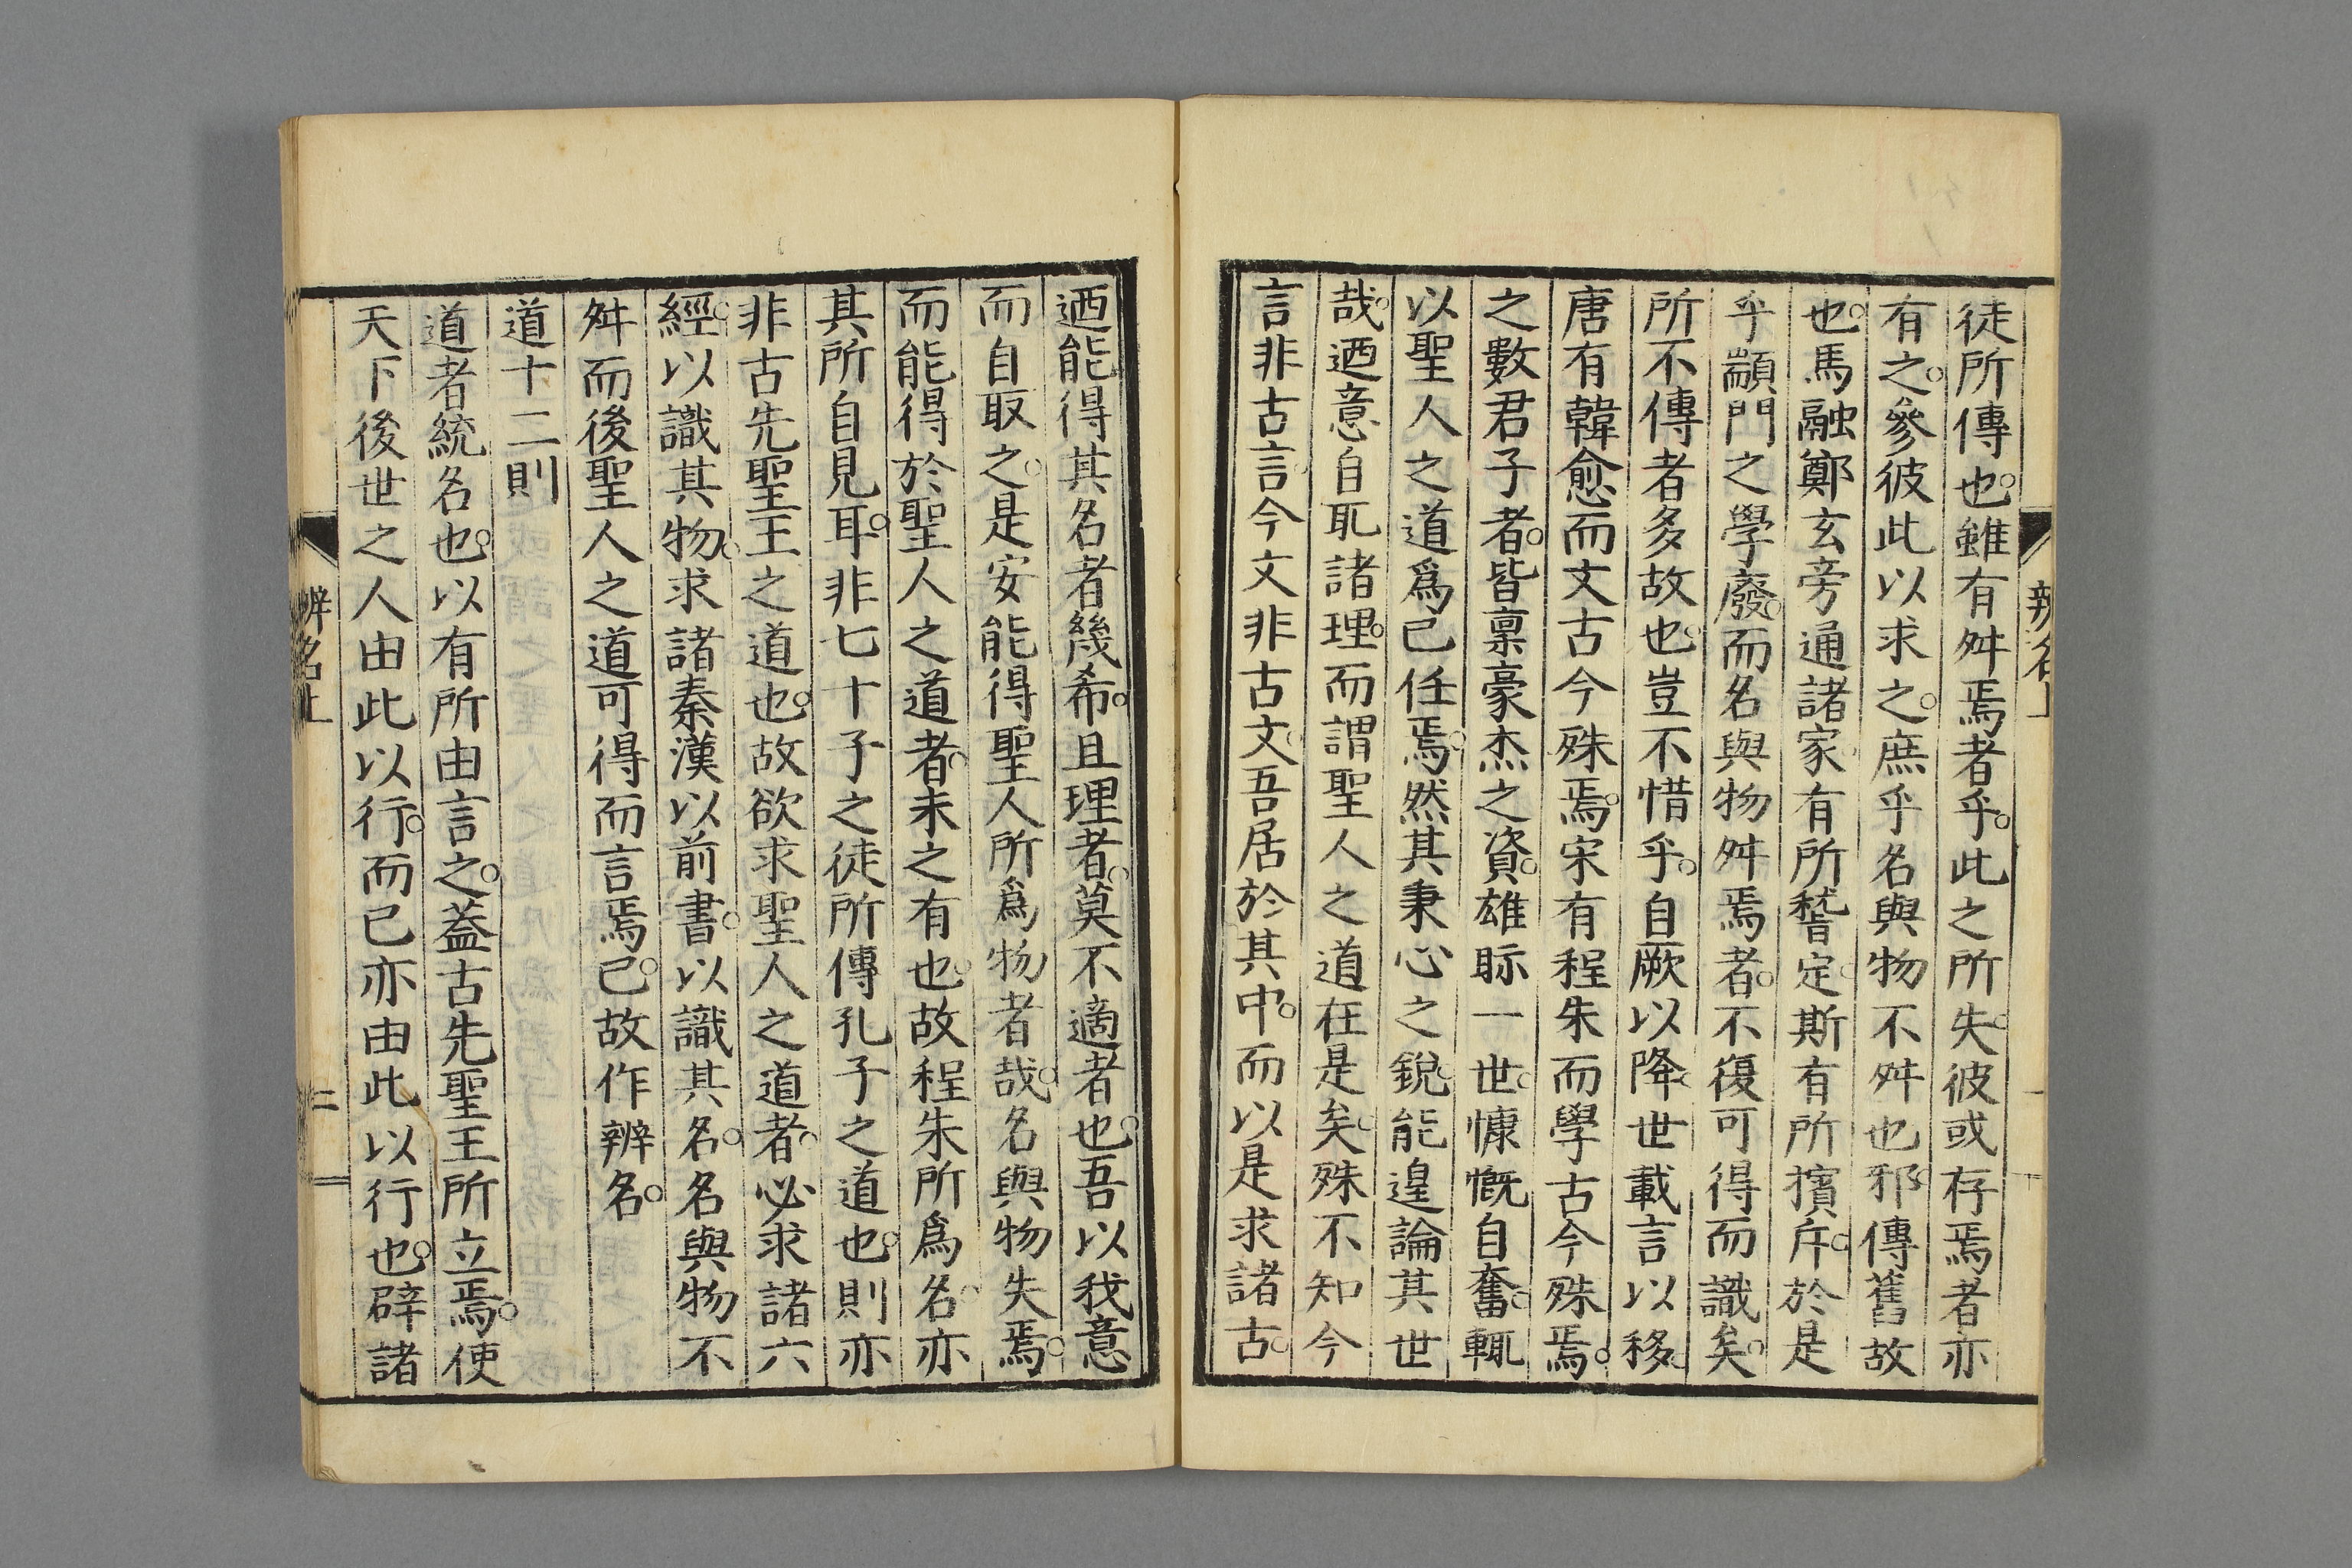 徒所傳也。雖有舛焉者乎。此之所失。彼或存焉者亦
有之。參彼此以求之。庶乎名與物不舛也邪。傳舊故
也。馬融鄭玄旁通諸家。有所稽定。斯有所擯斥。於是
乎顓門之學廢。而名與物舛焉者。不復可得而識矣。
所不傳者多故也。豈不惜乎。自厥以降。世載言以移。
唐有韓愈而文古今殊焉。宋有程朱而學古今殊焉。
之數君子者。皆稟豪杰之資。雄眎一世。慷慨自奮。輒
以聖人之道爲己任焉。然其秉心之銳。能遑論其世
哉。迺意自取諸理。而謂聖人之道在是矣。殊不知今
言非古言。今文非古文。吾居於其中。而以是求諸古。
迺能得其名者幾希。且理者。莫不適者也。吾以我意
而自取之。是安能得聖人所爲物者哉。名與物失焉。
而能得於聖人之道者。未之有也。故程朱所爲名。亦
其所自見耳。非七十子之徒所傳孔子之道也。則亦
非古先聖王之道也。故欲求聖人之道者。必求諸六
經。以識其物。求諸秦漢以前書。以識其名。名與物不
舛而後聖人之道可得而言焉已。故作辨名。
道十二則
道者統名也。以有所由言之。蓋古先聖王所立焉。使
天下後世之人由此以行。而已亦由此以行也。辟諸
辨名上
二
辨名上